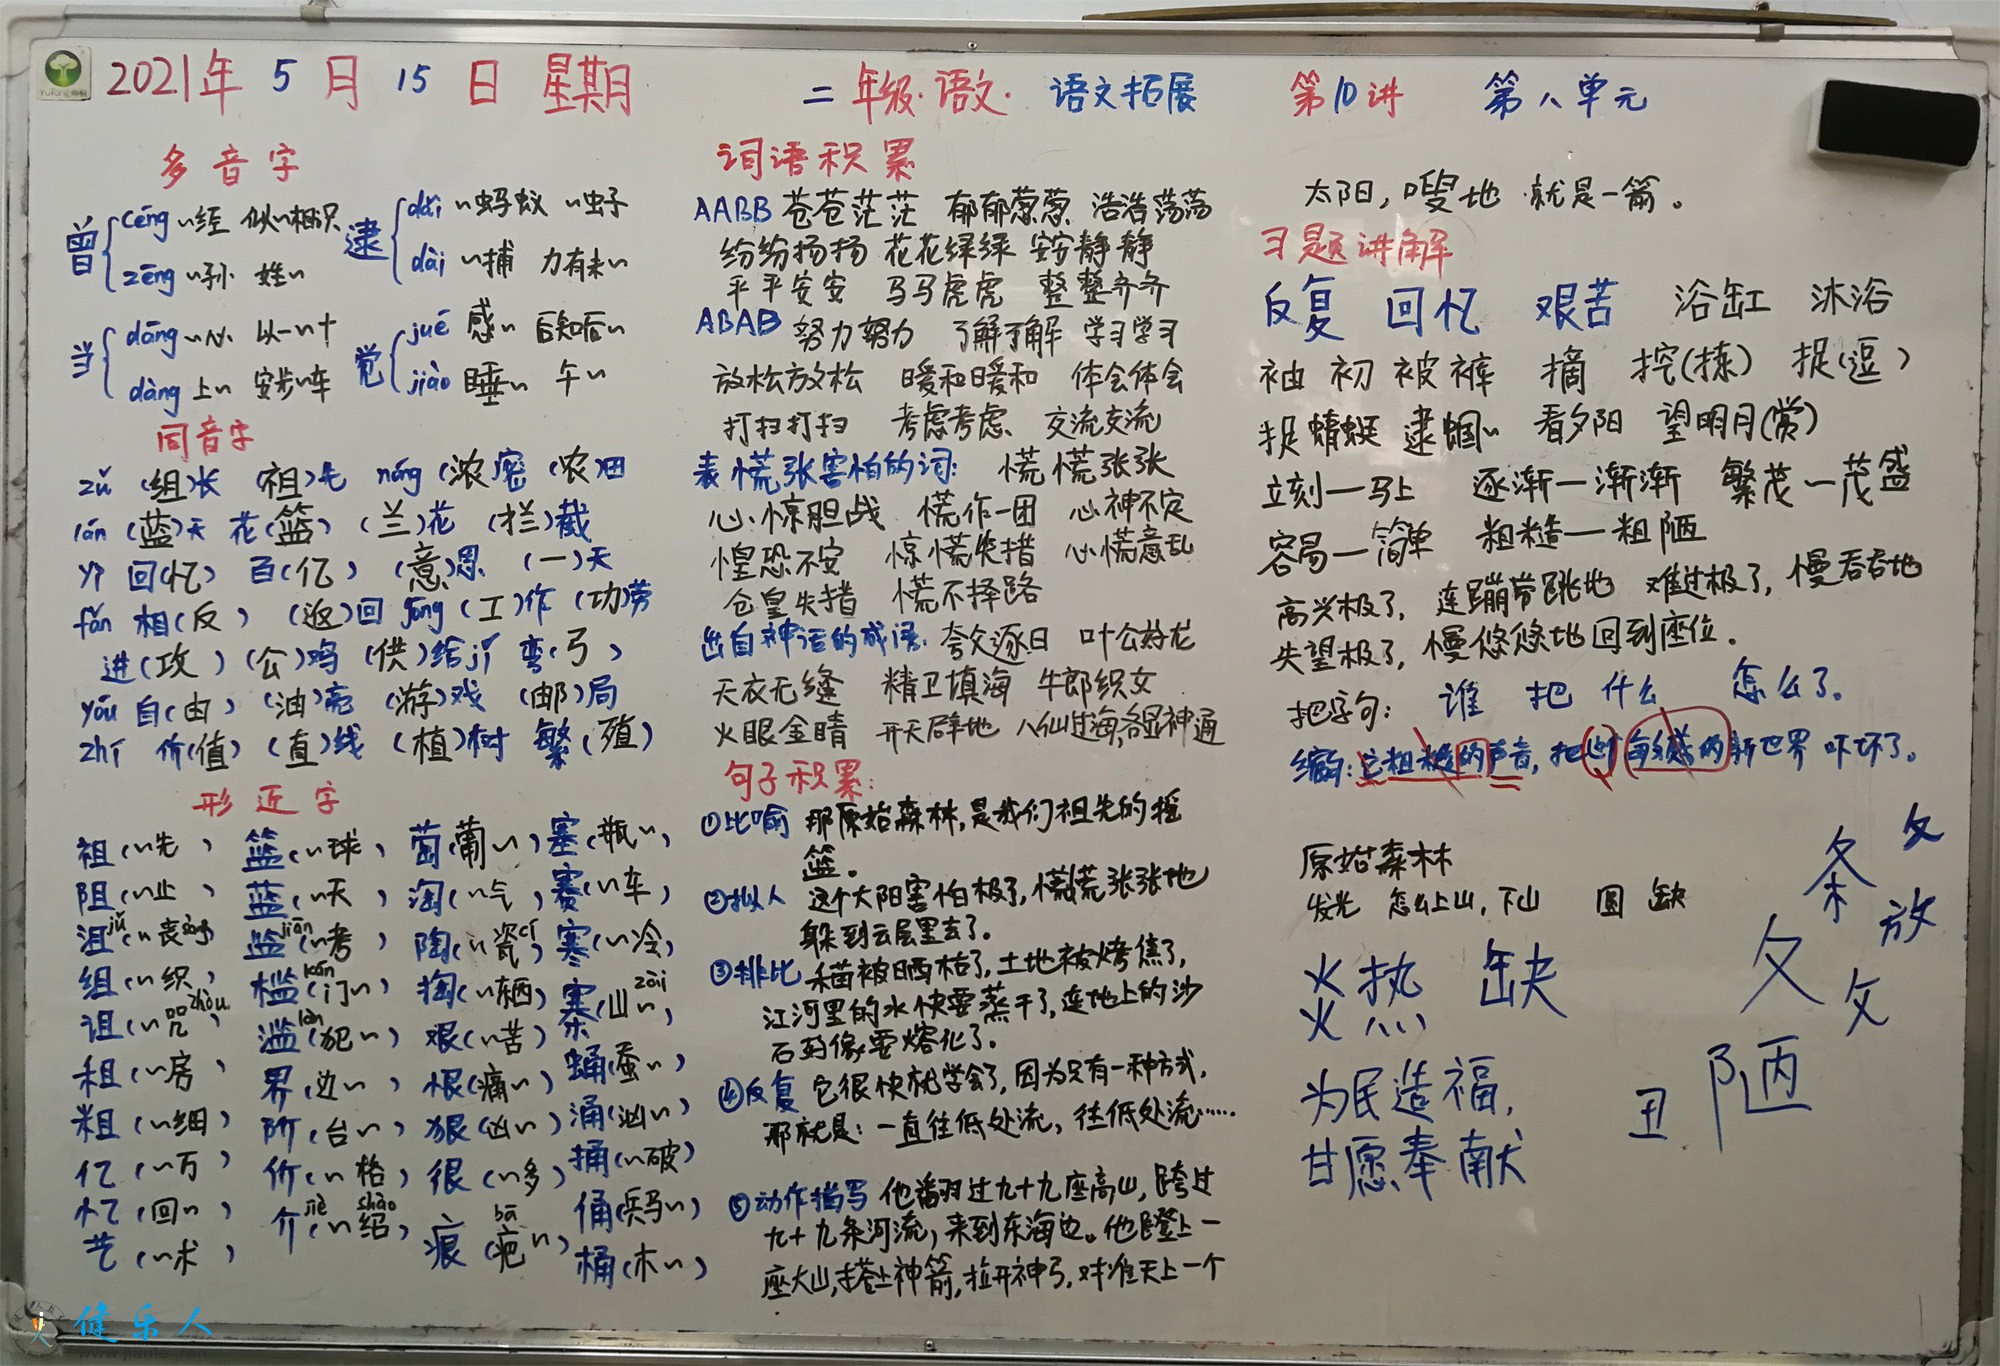 2021年 5 月 15 日 星期
二 年级·语文· 语文拓展 第10讲 第八单元
多音字
曾 céng ~经 似~相识
zēng ~孙 姓~
逮 dǎi ~蚂蚁 ~虫子
dài ~捕 力有未~
当 dāng ~心 以一~十
dàng 上~ 安步~车
觉 jué 感~ 后知后~
jiào 睡~ 午~
同音字
zǔ (组)长 (祖)先 nóng (浓)密 (农)田
lán (蓝)天 花(篮) (兰)花 (拦)截
yì 回(忆) 百(亿) (意)思 (一)天
fǎn 相(反) (返)回 gōng (工)作 (功)劳
进(攻) (公)鸡 (供)给jǐ 弯(弓)
yóu 自(由) (油)亮 (游)戏 (邮)局
zhí 价(值) (直)线 (植)树 繁(殖)
形近字
祖(~先) 篮(~球) 萄(葡~) 塞(瓶~)
阻(~止) 蓝(~天) 淘(~气) 赛(~车)
沮jǔ(~丧) 监jiān(~考) 陶(~瓷cí) 寒(~冷)
组(~织) 槛kǎn(门~) 掏(~东西) 寨zhài(山~)
诅(~咒zhòu) 滥làn(~犯) 艰(~苦) 蛹(蚕~)
租(~房) 界(边~) 恨(痛~) 涌(汹~)
粗(~细) 阶(台~) 狠(凶~) 捅(~破)
亿(~万) 价(~格) 很(~多) 俑(兵马~)
忆(回~) 介jiè(~绍shào) 痕(疤bā~) 桶(木~)
艺(~术)
词语积累
AABB 苍苍茫茫 郁郁葱葱 浩浩荡荡
纷纷扬扬 花花绿绿 安安静静
平平安安 马马虎虎 整整齐齐
ABAB 努力努力 了解了解 学习学习
放松放松 暖和暖和 体会体会
打扫打扫 考虑考虑 交流交流
表慌张害怕的词: 慌慌张张
心惊胆战 慌作一团 心神不定
惶恐不安 惊慌失措 心慌意乱
仓皇失措 慌不择路
出自神话的成语: 夸父逐日 叶公好龙
天衣无缝 精卫填海 牛郎织女
火眼金睛 开天辟地 八仙过海,各显神通
句子积累:
①比喻 那原始森林,是我们祖先的摇
篮。
②拟人 这个太阳害怕极了,慌慌张张地
躲到云层里去了。
③排比 禾苗被晒枯了,土地被烤焦了,
江河里的水快要蒸干了,连地上的沙
石都像要熔化了。
④反复 它很快就学会了,因为只有一种方式,
那就是:一直往低处流,往低处流……
⑤动作描写 他翻过九十九座高山,跨过
九十九条河流,来到东海边。他登上一
座大山,搭上神箭,拉开神弓,对准天上一个
太阳,嗖地 就是一箭。
习题讲解
反复 回忆 艰苦 浴缸 沐浴
袖 初 被 裤 摘 挖(拣) 捉(逗)
捉蜻蜓 逮蝈~ 看夕阳 望明月(赏)
立刻—马上 逐渐—渐渐 繁茂—茂盛
容易—简单 粗糙—粗陋
高兴极了,连蹦带跳地 难过极了,慢吞吞地
失望极了,慢悠悠地回到座位。
把字句: 谁 把 什么 怎么了。
缩句:它粗糙的声音,把 敏感的新世界 吓坏了。
原始森林
发光 怎么上山,下山 圆 缺
炎热 缺
为民造福,
甘愿奉献
夂 条
放
夂 攵
丑 陋
健乐人